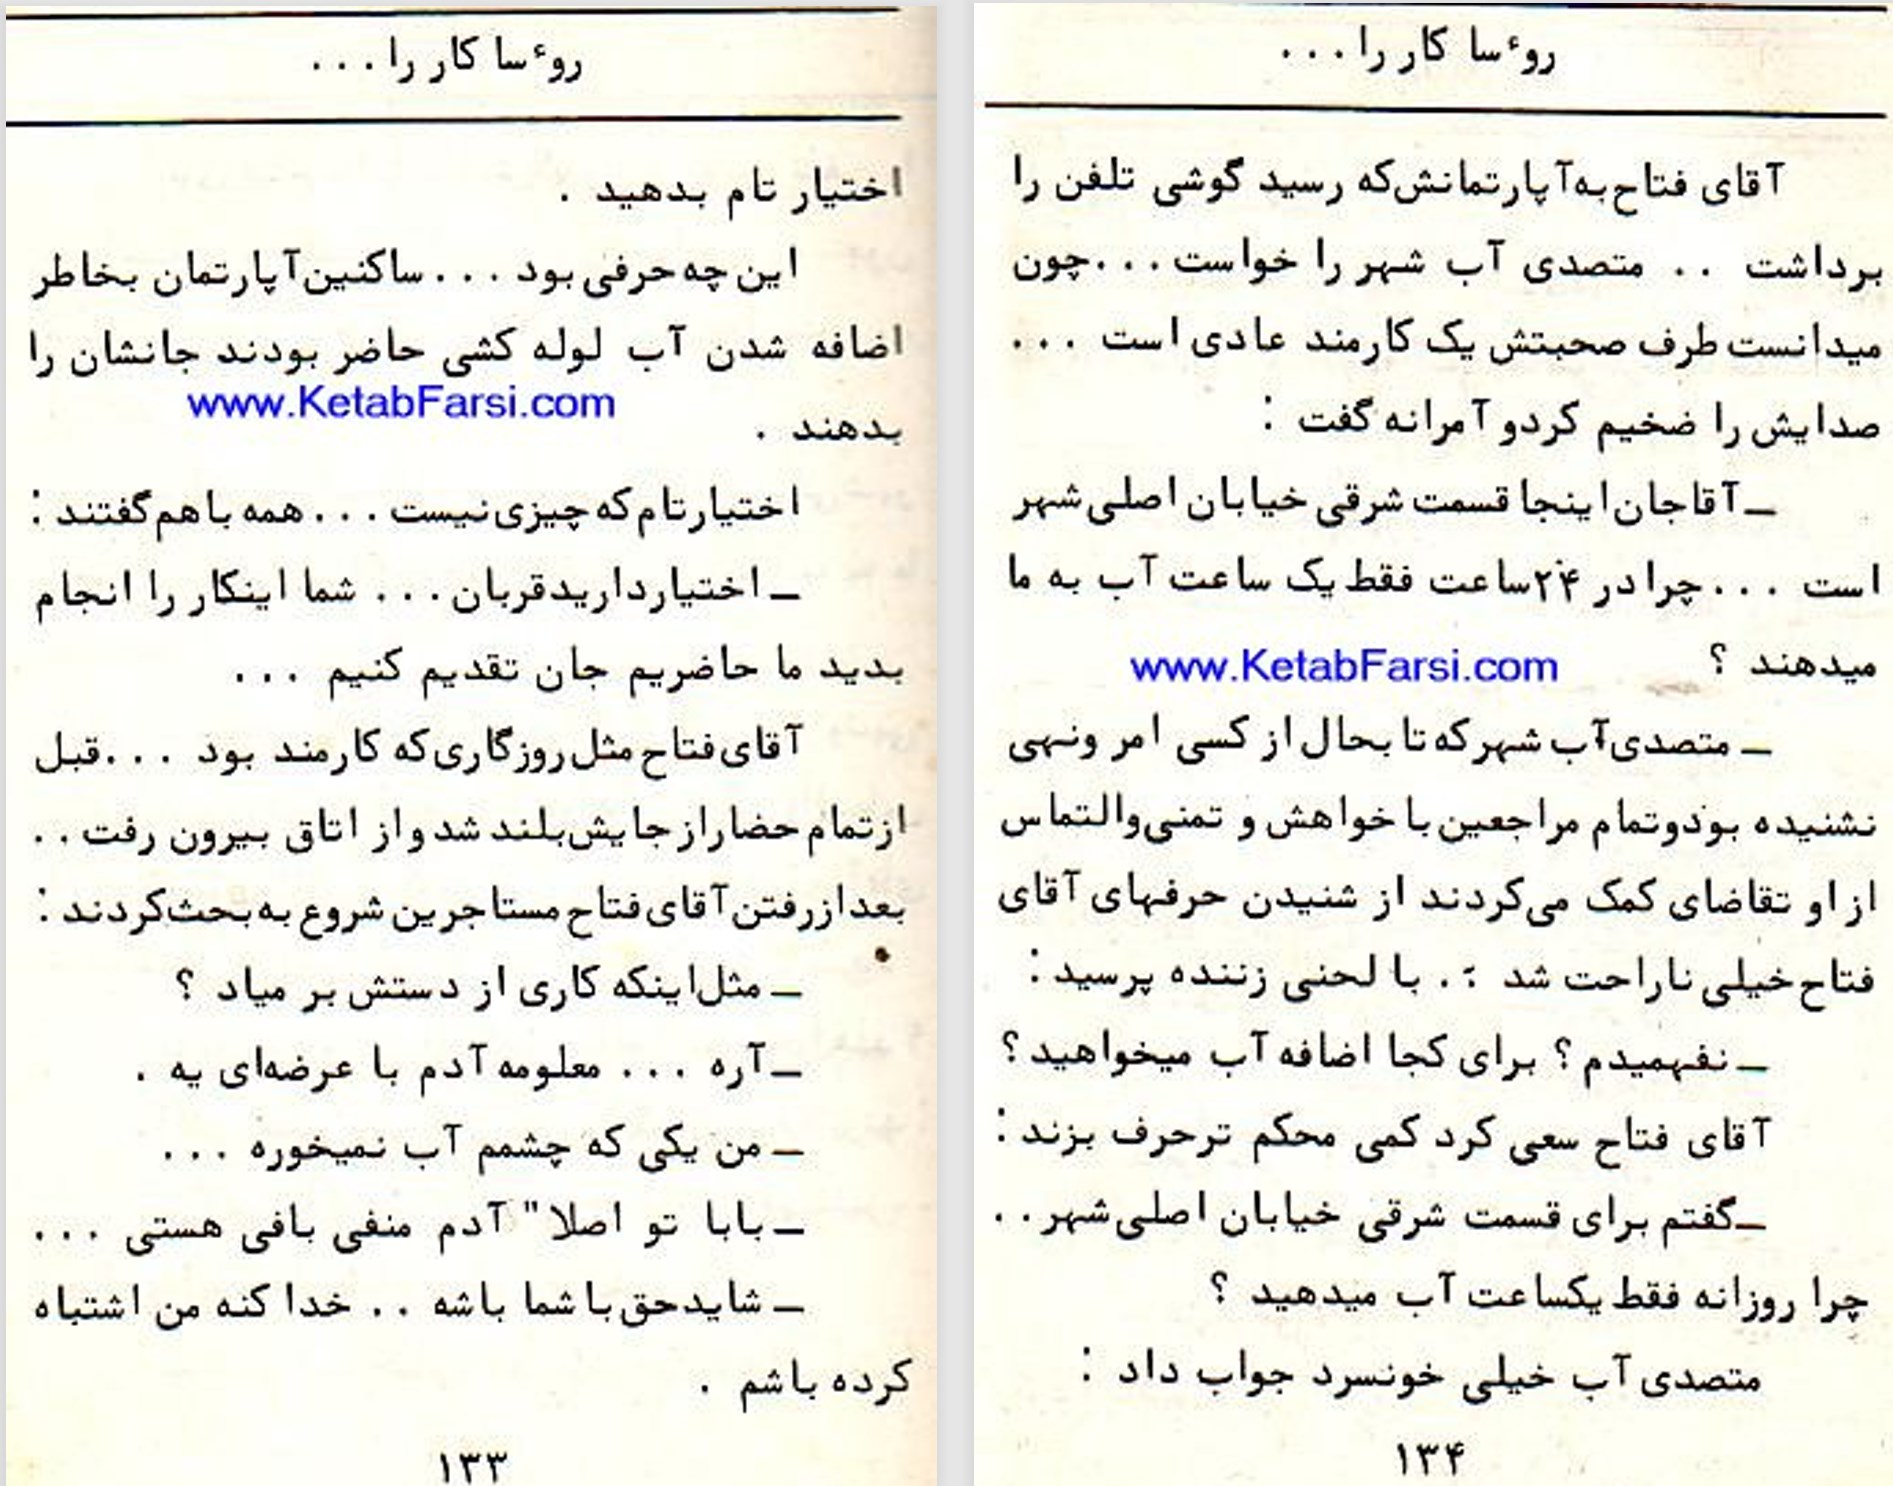 روٴسا کار را . . .
اختیار تام بدهید .
این چه حرفی بود . . . ساکنین آپارتمان بخاطر
اضافه شدن آب لوله کشی حاضر بودند جانشان را
www.KetabFarsi.com
بدهند .
اختیار تام که چیزی نیست . . . همه با هم گفتند :
ـ اختیار دارید قربان . . . شما اینکار را انجام
بدید ما حاضریم جان تقدیم کنیم . . .
آقای فتاح مثل روزگاری که کارمند بود . . . قبل
از تمام حضار از جایش بلند شد و از اتاق بیرون رفت . .
بعد از رفتن آقای فتاح مستاجرین شروع به بحث کردند :
ـ مثل اینکه کاری از دستش بر میاد ؟
ـ آره . . . معلومه آدم با عرضه‌ای یه .
ـ من یکی که چشمم آب نمیخوره . . .
ـ بابا تو اصلا" آدم منفی بافی هستی . . .
ـ شاید حق با شما باشه . . خدا کنه من اشتباه
کرده باشم .
۱۳۳
روٴسا کار را . . .
آقای فتاح به آپارتمانش که رسید گوشی تلفن را
برداشت . . متصدی آب شهر را خواست . . . چون
میدانست طرف صحبتش یک کارمند عادی است . . .
صدایش را ضخیم کرد و آمرانه گفت :
ـ آقاجان اینجا قسمت شرقی خیابان اصلی شهر
است . . . چرا در ۲۴ ساعت فقط یک ساعت آب به ما
میدهند ؟
www.KetabFarsi.com
ـ متصدی آب شهر که تا بحال از کسی امر ونهی
نشنیده بود و تمام مراجعین با خواهش و تمنی والتماس
از او تقاضای کمک می‌کردند از شنیدن حرفهای آقای
فتاح خیلی ناراحت شد . . با لحنی زننده پرسید :
ـ نفهمیدم ؟ برای کجا اضافه آب میخواهید ؟
آقای فتاح سعی کرد کمی محکم تر حرف بزند :
ـ گفتم برای قسمت شرقی خیابان اصلی شهر . .
چرا روزانه فقط یکساعت آب میدهید ؟
متصدی آب خیلی خونسرد جواب داد :
۱۳۴